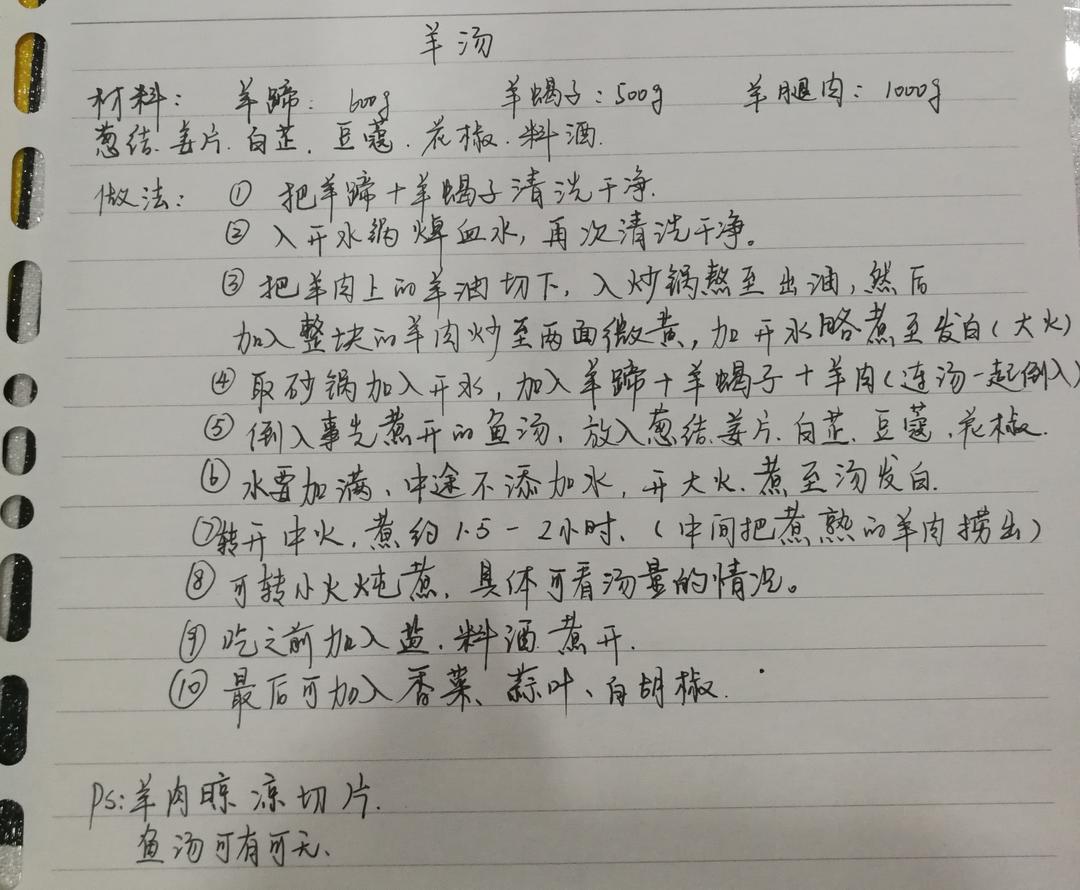 羊汤
材料: 羊蹄: 600g 羊蝎子:500g 羊腿肉: 1000g
葱结.姜片.白芷.豆蔻.花椒.料酒.
做法: ① 把羊蹄+羊蝎子清洗干净.
② 入开水锅焯血水,再次清洗干净。
③ 把羊肉上的羊油切下,入炒锅熬至出油,然后
加入整块的羊肉炒至两面微黄,加开水略煮至发白(大火)
④ 取砂锅加入开水,加入羊蹄+羊蝎子+羊肉(连汤一起倒入)
⑤ 倒入事先煮开的鱼汤,放入葱结.姜片.白芷.豆蔻.花椒.
⑥ 水要加满、中途不添加水,开大火.煮至汤发白.
⑦转开中火,煮约1.5-2小时、(中间把煮熟的羊肉捞出)
⑧ 可转小火炖煮,具体可看汤量的情况。
⑨ 吃之前加入盐.料酒.煮开.
⑩ 最后可加入香菜、蒜叶、白胡椒.
Ps:羊肉晾凉切片.
鱼汤可有可无、